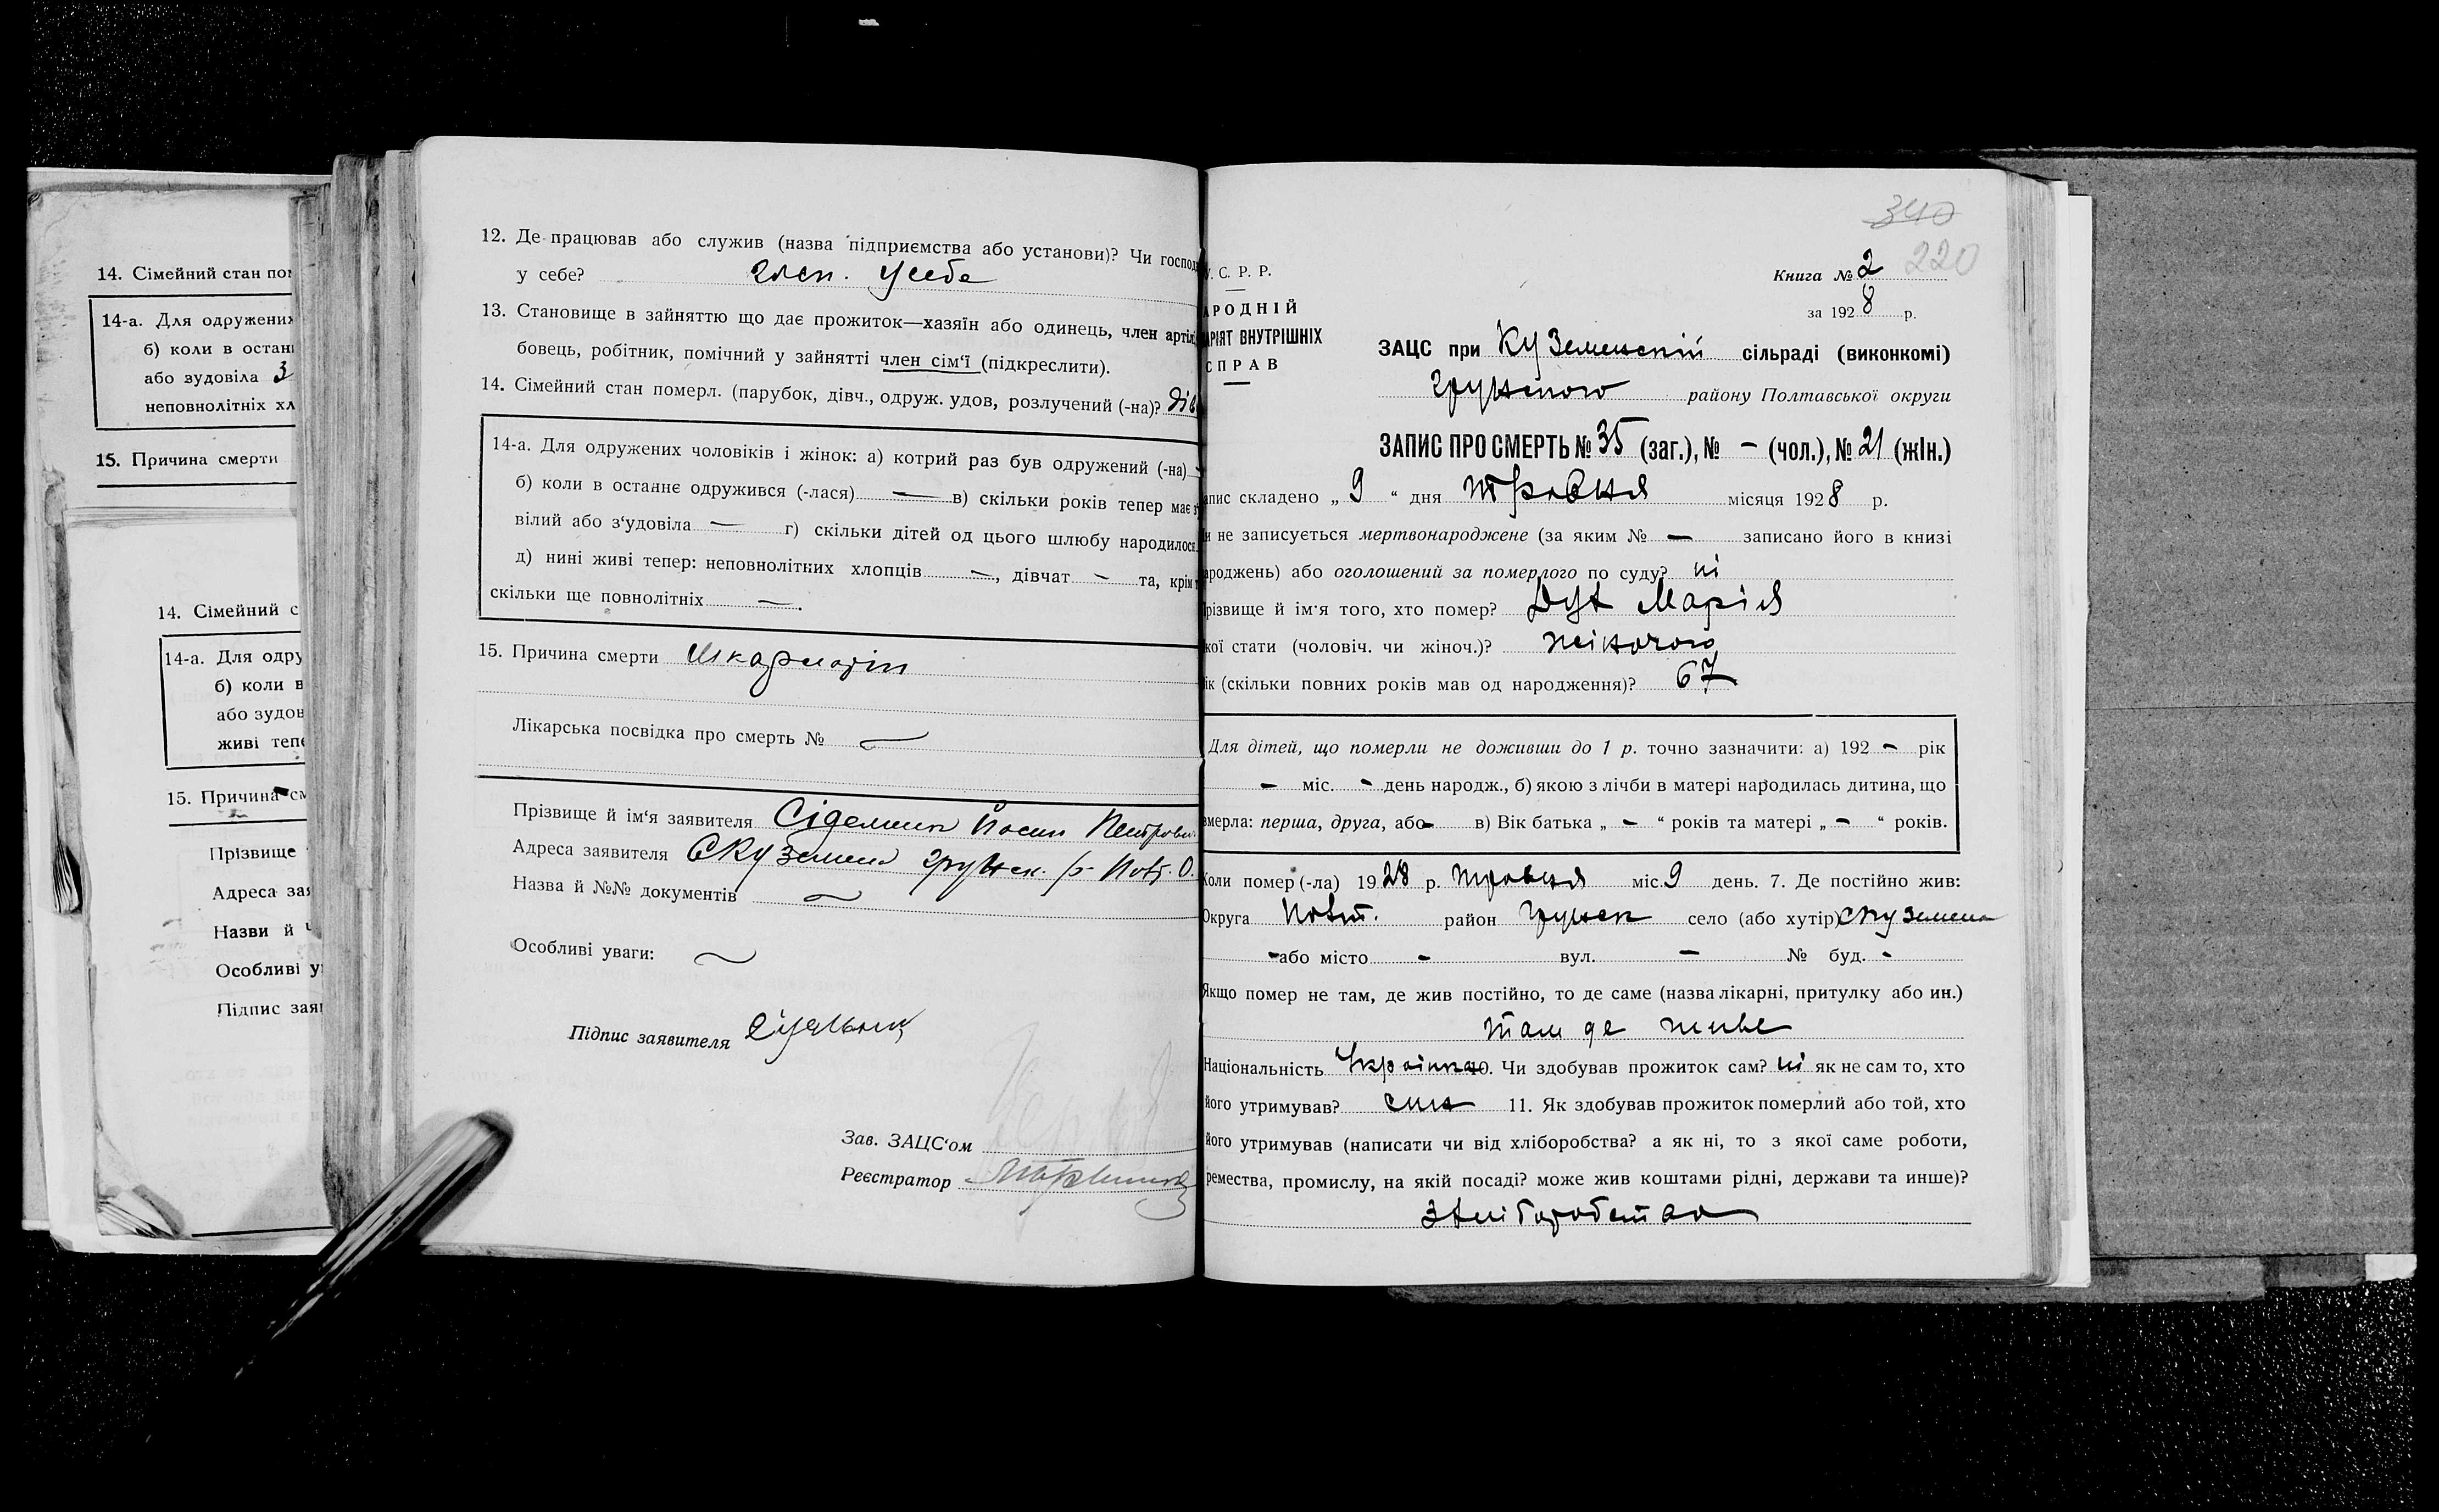 14. Сімейний стан пом
14-а. Для одружених
б) коли в останн
або зудовіла 3
неповнолітніх хл
15. Причина смерти
14. Сімейний с
14-а. Для одру
б) коли в
або зудов
живі тепе
15. Причина см
Прізвище
Адреса зая
Назви й
Особливі ув
Підпис заяв
12. Де працював або служив (назва підприємства або установи)? Чи господ
у себе? у себе
13. Становище в зайняттю що дає прожиток—хазяїн або одинець, член артіл
бовець, робітник, помічний у зайнятті член сім'ї (підкреслити).
14. Сімейний стан померл. (парубок, дівч., одруж. удов, розлучений (-на)? дів
14-а. Для одружених чоловіків і жінок: а) котрий раз був одружений (-на) —
б) коли в останнє одружився (-лася) — в) скільки років тепер має з'
вілий або з'удовіла — г) скільки дітей од цього шлюбу народилося
д) нині живі тепер: неповнолітних хлопців —, дівчат — та, крім т
скільки ще повнолітніх —.
15. Причина смерти
Лікарська посвідка про смерть № —
Прізвище й ім'я заявителя Йосип Петрови
Адреса заявителя С Куземен Грунськ. р- Полт. О.
Назва й №№ документів —
Особливі уваги: —
Підпис заявителя
Зав. ЗАЦС'ом
Реєстратор
340
220
У. С. Р. Р.
АРОДНІЙ
АРІЯТ ВНУТРІШНІХ
СПРАВ
Книга № 2
за 1928 р.
ЗАЦС при Куземенській сільраді (виконкомі)
Грунського району Полтавської округи
ЗАПИС ПРО СМЕРТЬ № 35 (заг.), № — (чол.), № 21 (жін.)
апис складено „ 9 “ дня травня місяця 1928 р.
и не записується мертвонароджене (за яким № — записано його в книзі
ароджень) або оголошений за померлого по суду? ні
різвище й ім'я того, хто помер? Марія
кої стати (чоловіч. чи жіноч.)? жіночого
ік (скільки повних років мав од народження)? 67
Для дітей, що померли не доживши до 1 р. точно зазначити: а) 192 — рік
— міс. — день народж., б) якою з лічби в матері народилась дитина, що
вмерла: перша, друга, або — в) Вік батька „ — “ років та матері „ — “ років.
Коли помер (-ла) 1928 р. травня міс. 9 день. 7. Де постійно жив:
Округа Полт. район Грунськ село (або хутір) С Куземен
— або місто — вул. — № буд. —
Якщо помер не там, де жив постійно, то де саме (назва лікарні, притулку або ин.)
там де живе
Національність Українка 10. Чи здобував прожиток сам? ні як не сам то, хто
його утримував? син 11. Як здобував прожиток померлий або той, хто
його утримував (написати чи від хліборобства? а як ні, то з якої саме роботи,
ремества, промислу, на якій посаді? може жив коштами рідні, держави та инше)?
з хліборобства